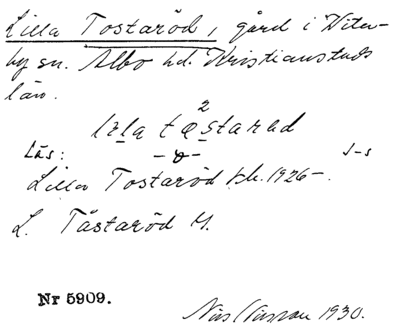 Lilla Tostaröd, gård i Viter-
by sn. Albo hd. Kristianstads
län.
2
lila tostarad
Läs: — ö — J-s
Lilla Tostaröd Jrk. 1926 —.
L. Tåstaröd M.
Nr 5909.
Nils 1930.